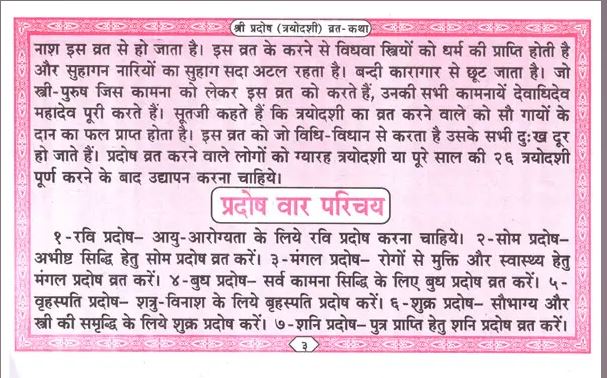 श्री प्रदोष (त्रयोदशी) व्रत-कथा
नाश इस व्रत से हो जाता है। इस व्रत के करने से विधवा स्त्रियों को धर्म की प्राप्ति होती है
और सुहागन नारियों का सुहाग सदा अटल रहता है। बन्दी कारागार से छूट जाता है। जो
स्त्री-पुरुष जिस कामना को लेकर इस व्रत को करते हैं, उनकी सभी कामनायें देवाधिदेव
महादेव पूरी करते हैं। सूतजी कहते हैं कि त्रयोदशी का व्रत करने वाले को सौ गायों के
दान का फल प्राप्त होता है। इस व्रत को जो विधि-विधान से करता है उसके सभी दुःख दूर
हो जाते हैं। प्रदोष व्रत करने वाले लोगों को ग्यारह त्रयोदशी या पूरे साल की २६ त्रयोदशी
पूर्ण करने के बाद उद्यापन करना चाहिये।
प्रदोष वार परिचय
१-रवि प्रदोष– आयु-आरोग्यता के लिये रवि प्रदोष करना चाहिये। २-सोम प्रदोष–
अभीष्ट सिद्धि हेतु सोम प्रदोष व्रत करें। ३-मंगल प्रदोष– रोगों से मुक्ति और स्वास्थ्य हेतु
मंगल प्रदोष व्रत करें। ४-बुध प्रदोष– सर्व कामना सिद्धि के लिए बुध प्रदोष व्रत करें। ५-
वृहस्पति प्रदोष– शत्रु-विनाश के लिये बृहस्पति प्रदोष करें। ६-शुक्र प्रदोष– सौभाग्य और
स्त्री की समृद्धि के लिये शुक्र प्रदोष करें। ७-शनि प्रदोष– पुत्र प्राप्ति हेतु शनि प्रदोष व्रत करें।
३